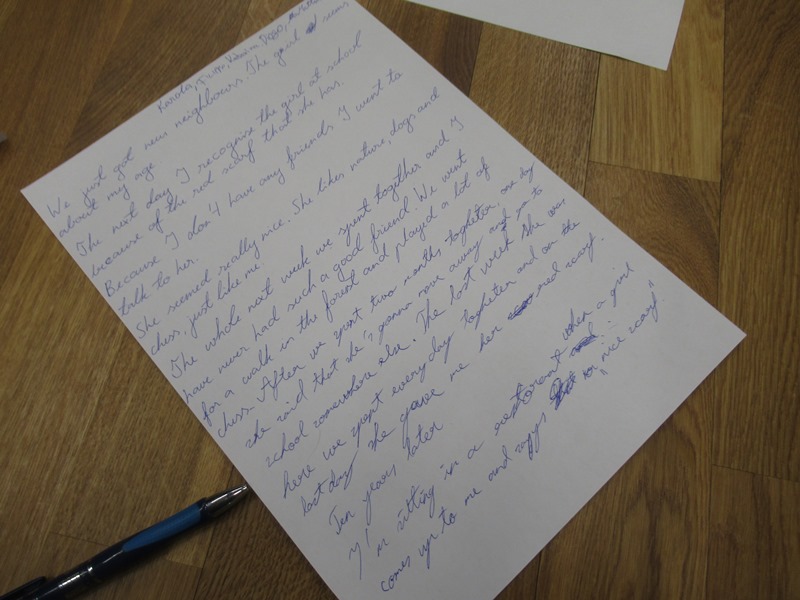 Karola,
We just got new neighbours. The girl seems
about my age.
The next day I recognise the girl at school
because of the red scarf that she has.
Because I don't have any friends I went to
talk to her.
She seemed really nice. She likes nature, dogs and
chess. just like me.
The whole next week we spent together and I
have never had such a good friend. We went
for a walk in the forest and played a lot of
chess. After we spent two months together, one day
she said that she's gonna move away and go to
school somewhere else. The last week she was
here we spent every day together and on the
last day she gave me her red scarf.
Ten years later
I'm sitting in a restorant when a girl
comes up to me and says "nice scarf."